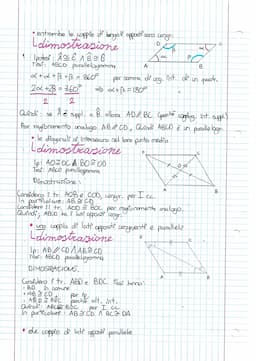 • entrambe le coppie di angoli opposti sono congr.
dimostrazione
Ipotesi: Â≅Ĉ ∧ B̂≅D̂
Tesi: ABCD parallelogramma
α+α+β+β=360° per somma di ang. int. di un quadr.
2α+2β=360° ⇒ α+β=180°
2 2
Quindi: se Â è suppl. a B̂ allora AD∥BC
Per ragionamento analogo AB∥CD, Quindi ABCD è un parallelogr.
• le diagonali si intersecano nel loro punto medio
dimostrazione
Ip: AO≅OC ∧ BO≅OD
Tesi: ABCD parallelogramma
Dimostrazione:
Considero i tr. AOB e COD, congr. per I cc.
In particolare: AB≅CD
Considero i tr. AOD e BOC per ragionamento analogo.
Quindi, ABCD ha i lati opposti congr.
• una coppia di lati opposti congruenti e paralleli
dimostrazione
Ip: AB∥CD ∧ AB≅CD
Tesi: ABCD parallelogramma
DIMOSTRAZIONE:
Considero i tr. ABD e BDC. Essi hanno:
• BD in comune
• AB≅CD per ip.
In particolare: AB≅CD ∧ BC≅DA
• due coppie di lati opposti paralleli